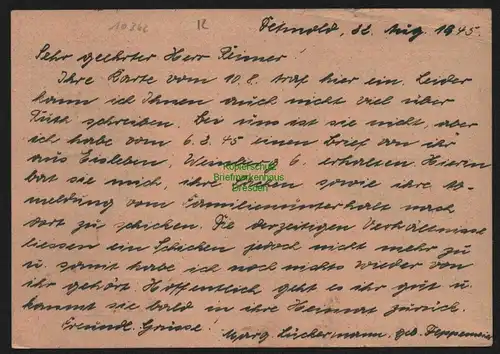 10362 R
Detmold, 22. Aug. 1945.
Sehr geehrter Herr Reiner!
Ihre Karte vom 10.8. traf hier ein. Leider
kann ich Ihnen auch nicht viel über
Ruth schreiben. Bei uns ist sie nicht, aber
ich habe vom 6.3.45 einen Brief von ihr
aus Eisleben, 6. erhalten. Hierin
Kopierschutz
Briefmarkenhaus
Dresden
bat sie mich, ihre sowie ihre Ab-
meldung vom Familienunterhalt nach
dort zu schicken. Die derzeitigen Verhältnisse
liessen ein Schicken jedoch nicht mehr zu
u. somit habe ich noch nichts wieder von
ihr gehört. Hoffentlich geht es ihr gut u.
kommt sie bald in ihre Heimat zurück.
Freundl. Grüsse! Marg. Lückermann, geb.